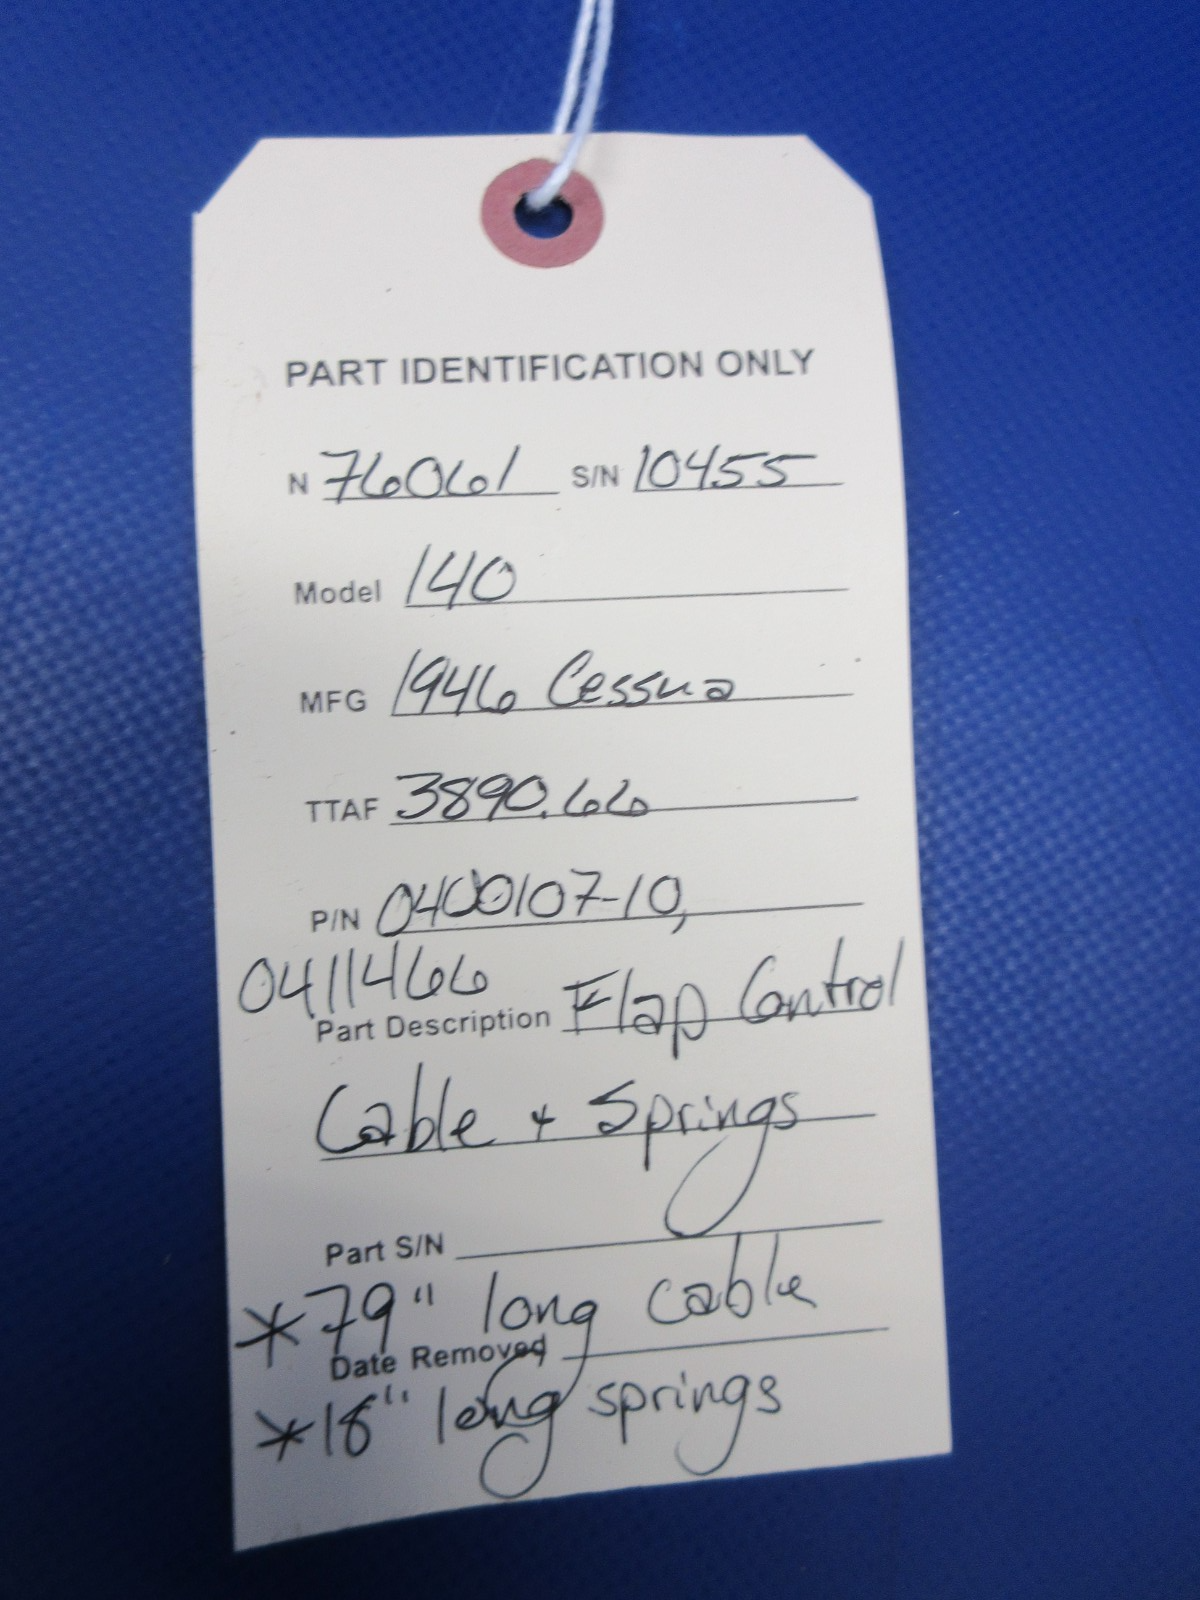 PART IDENTIFICATION ONLY
N 76061 S/N 10455
Model 140
MFG 1946 Cessna
TTAF 3890.66
P/N 0400107-10,
0411466
Part Description Flap Control
Cable + Springs
Part S/N
*79" long cable
Date Removed
*18" long springs